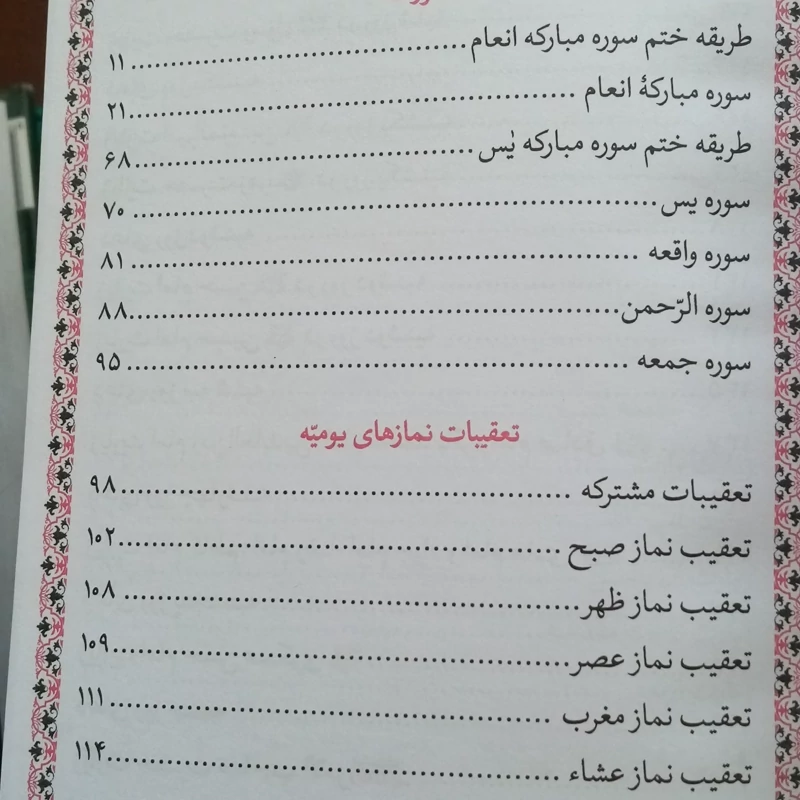 طریقه ختم سوره مبارکه انعام .......... ۱۱
سوره مبارکهٔ انعام .......... ۲۱
طریقه ختم سوره مبارکه یٰس .......... ۶۸
سوره یس .......... ۷۰
سوره واقعه .......... ۸۱
سوره الرّحمن .......... ۸۸
سوره جمعه .......... ۹۵
تعقیبات نمازهای یومیّه
تعقیبات مشترکه .......... ۹۸
تعقیب نماز صبح .......... ۱۰۲
تعقیب نماز ظهر .......... ۱۰۸
تعقیب نماز عصر .......... ۱۰۹
تعقیب نماز مغرب .......... ۱۱۱
تعقیب نماز عشاء .......... ۱۱۴